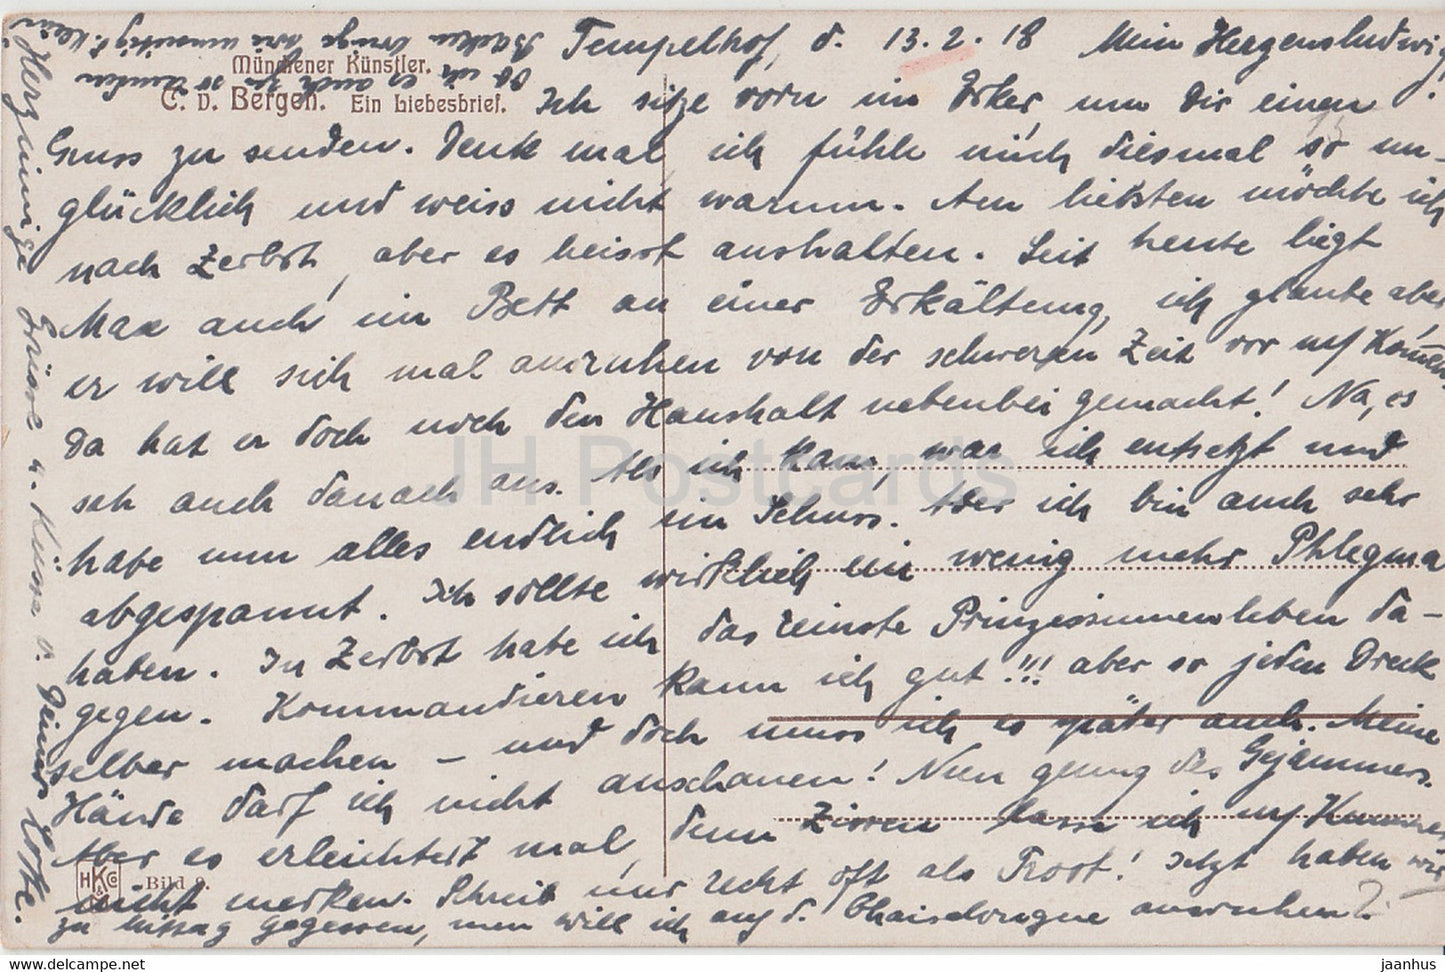 Tempelhof, d. 13.2.18 Mein Herzensludwig!
Münchener Künstler.
C. v. Bergen. Ein Liebesbrief.
Ich sitze vorn im Erker, um Dir einen
Gruss zu senden. Denk mal, ich fühle mich diesmal so un-
glücklich und weiss nicht warum. Am liebsten möchte ich
nach Zerbst, aber es heisst aushalten. Seit heute liegt
Max auch im Bett an einer Erkältung, ich glaube aber,
er will sich mal ausruhen von der schweren Zeit vor m/ Kommen
Da hat er doch noch den Haushalt nebenbei gemacht! Na, es
sah auch danach aus. Als ich kam, war ich entsetzt und
habe nun alles endlich im Schuss. Aber ich bin auch sehr
abgespannt. Ich sollte wirklich ein wenig mehr Phlegma
haben. In Zerbst habe ich das reinste Prinzessinnenleben da-
gegen. Kommandieren kann ich gut!!! aber so jeden Dreck
selber machen – und doch muss ich es später auch. Meine
Hände darf ich nicht anschauen! Nun genug des Gejammers.
Aber es erleichtert mal, denn lasse ich m/
nicht merken. Schreib nur recht oft als Trost! Jetzt haben wir
zu Mittag gegessen, nun will ich auf d. Chaiselongue ausruhen
HKCo Bild 9.
Herzinnige Grüsse u. Küsse v. Deiner Lotte.
Ob ich es auch so
JH Postcards
www.delcampe.net
jaanhus